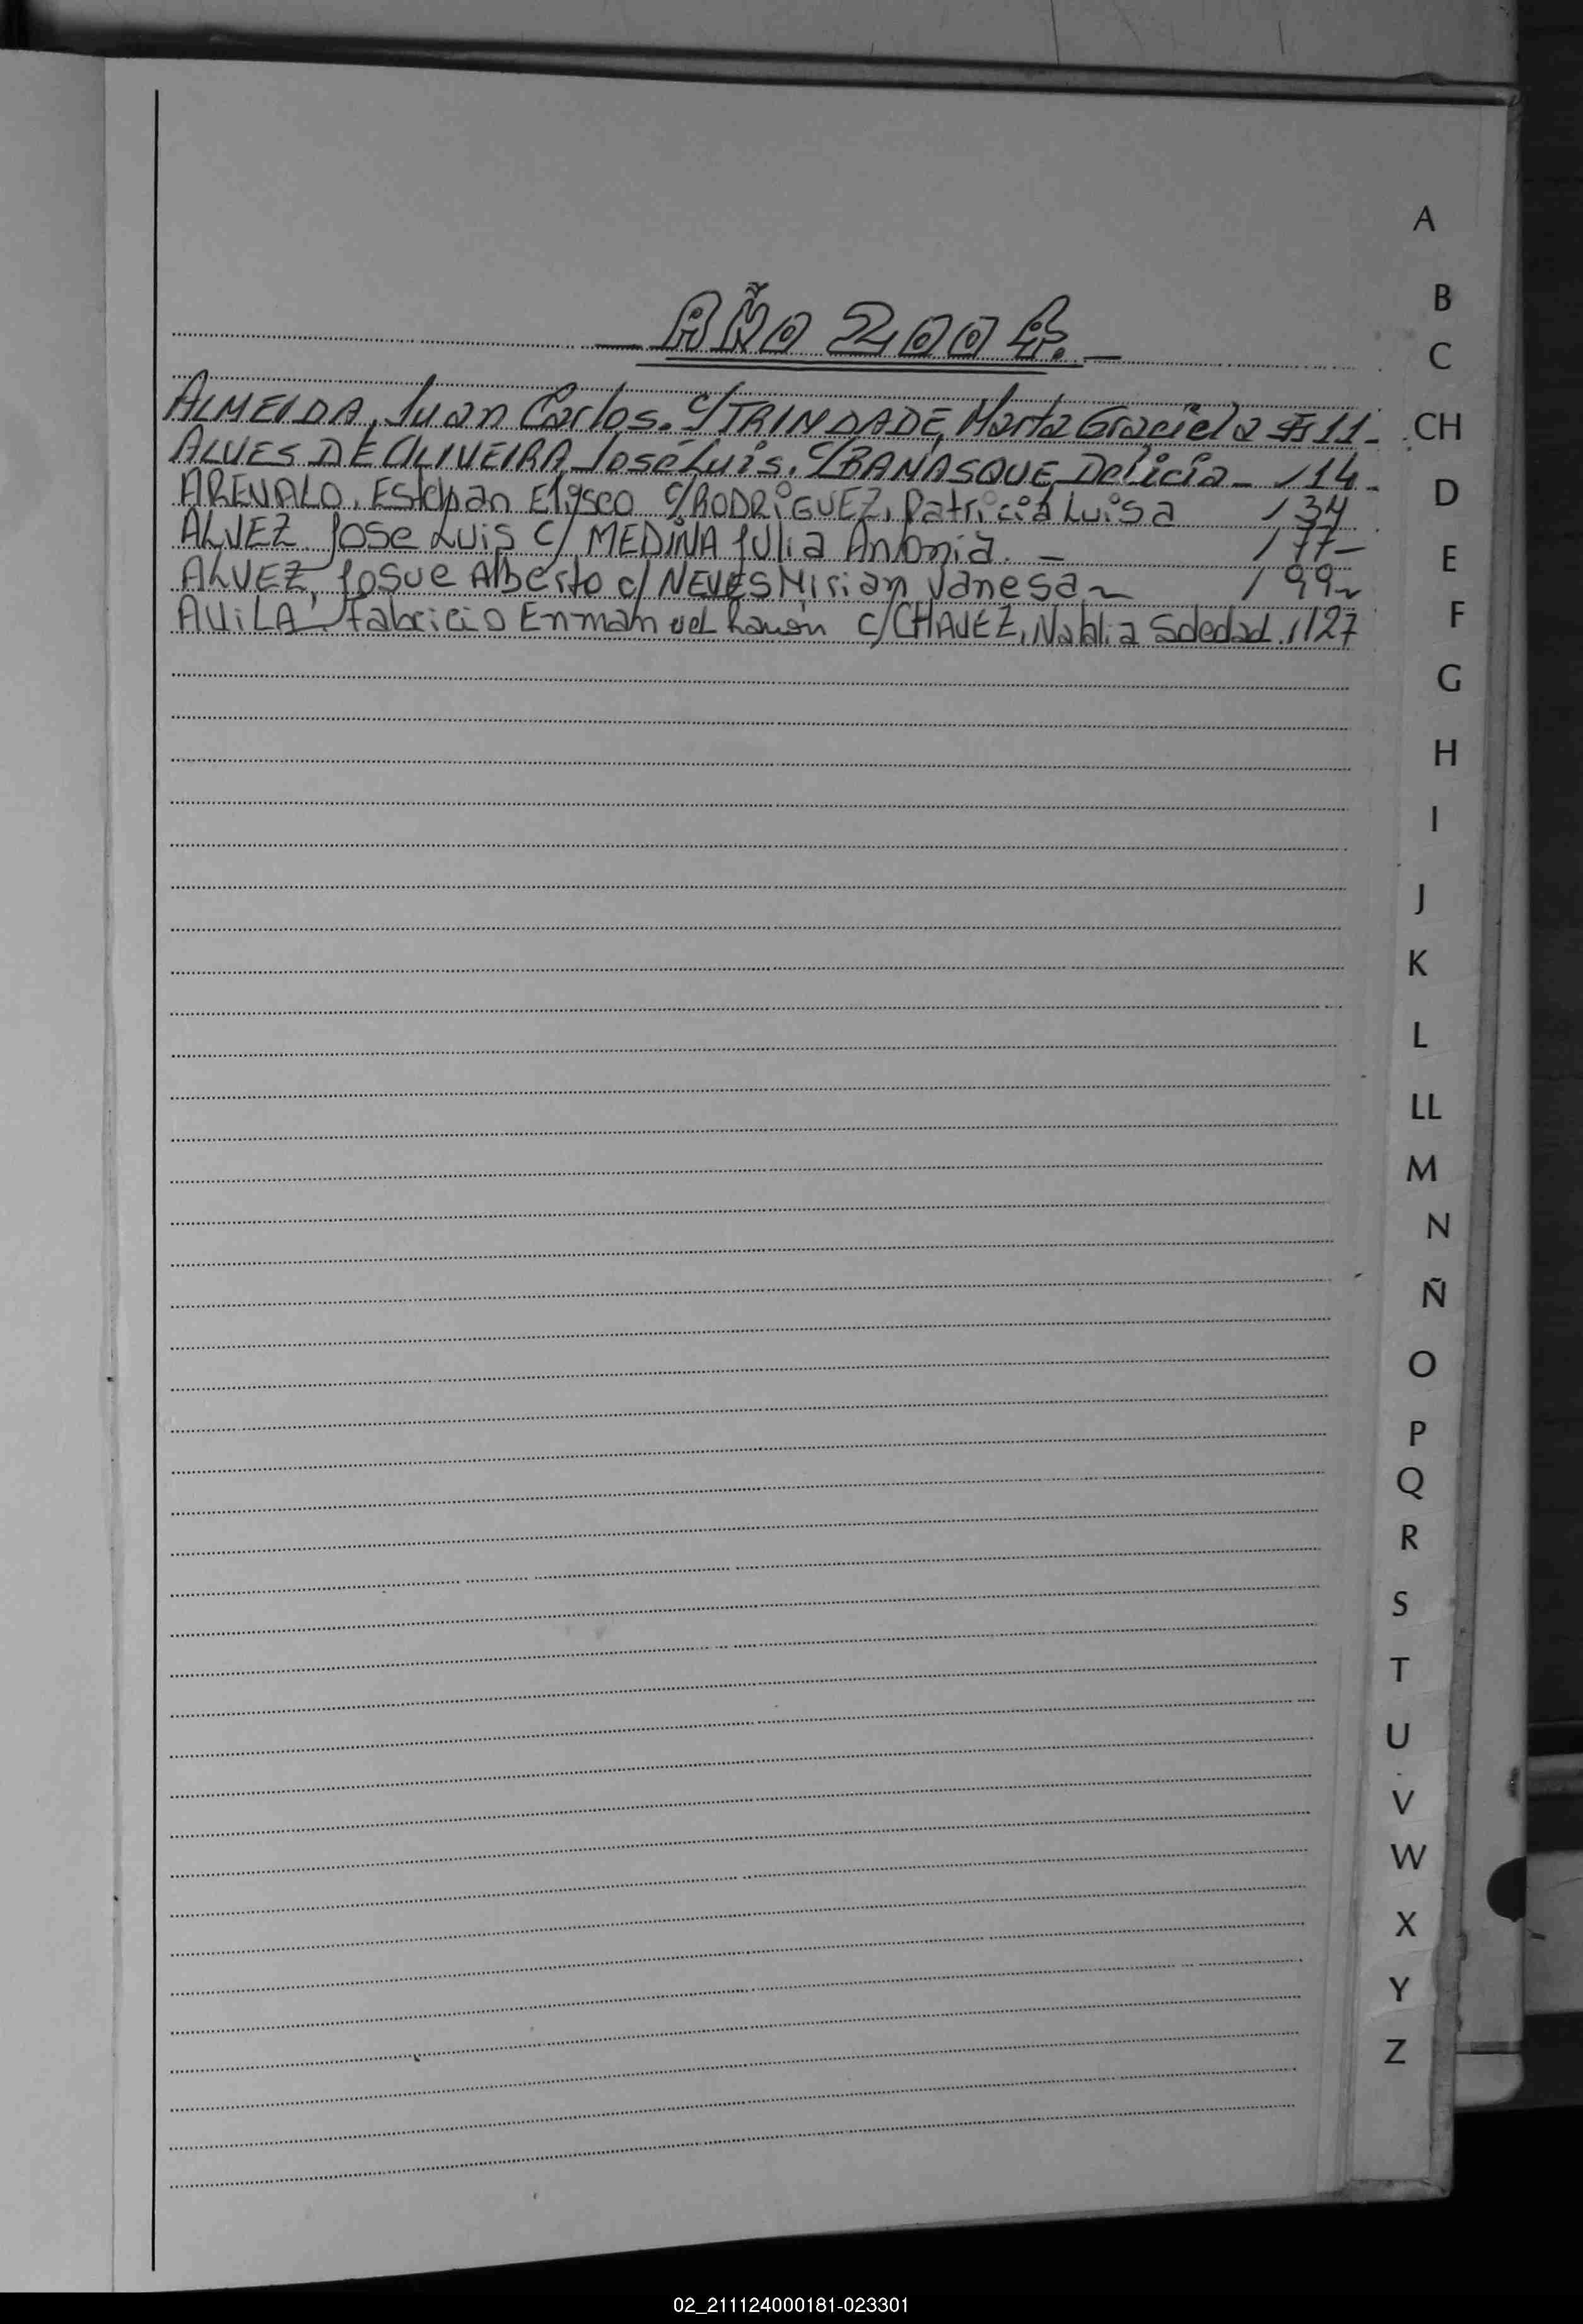 AÑO 2004.
ALMEIDA, Juan Carlos. c/TRINDADE, Marta Graciela Fs 11-
ALVES DE OLIVEIRA, José Luis. c/BANASQUE, Delicia - /14-
AREVALO, Esteban Elyseo c/RODRIGUEZ, Patricia Luisa /34
ALVEZ, Jose Luis c/ MEDINA Julia Antonia. - /77-
ALVEZ, Josue Alberto c/ NEVES Mirian Vanesa - /99-
AVILA, Fabricio Enmanuel Ramón c/CHAVEZ, Natalia Soledad. /127
A
B
C
CH
D
E
F
G
H
I
J
K
L
LL
M
N
Ñ
O
P
Q
R
S
T
U
V
W
X
Y
Z
02_211124000181-023301